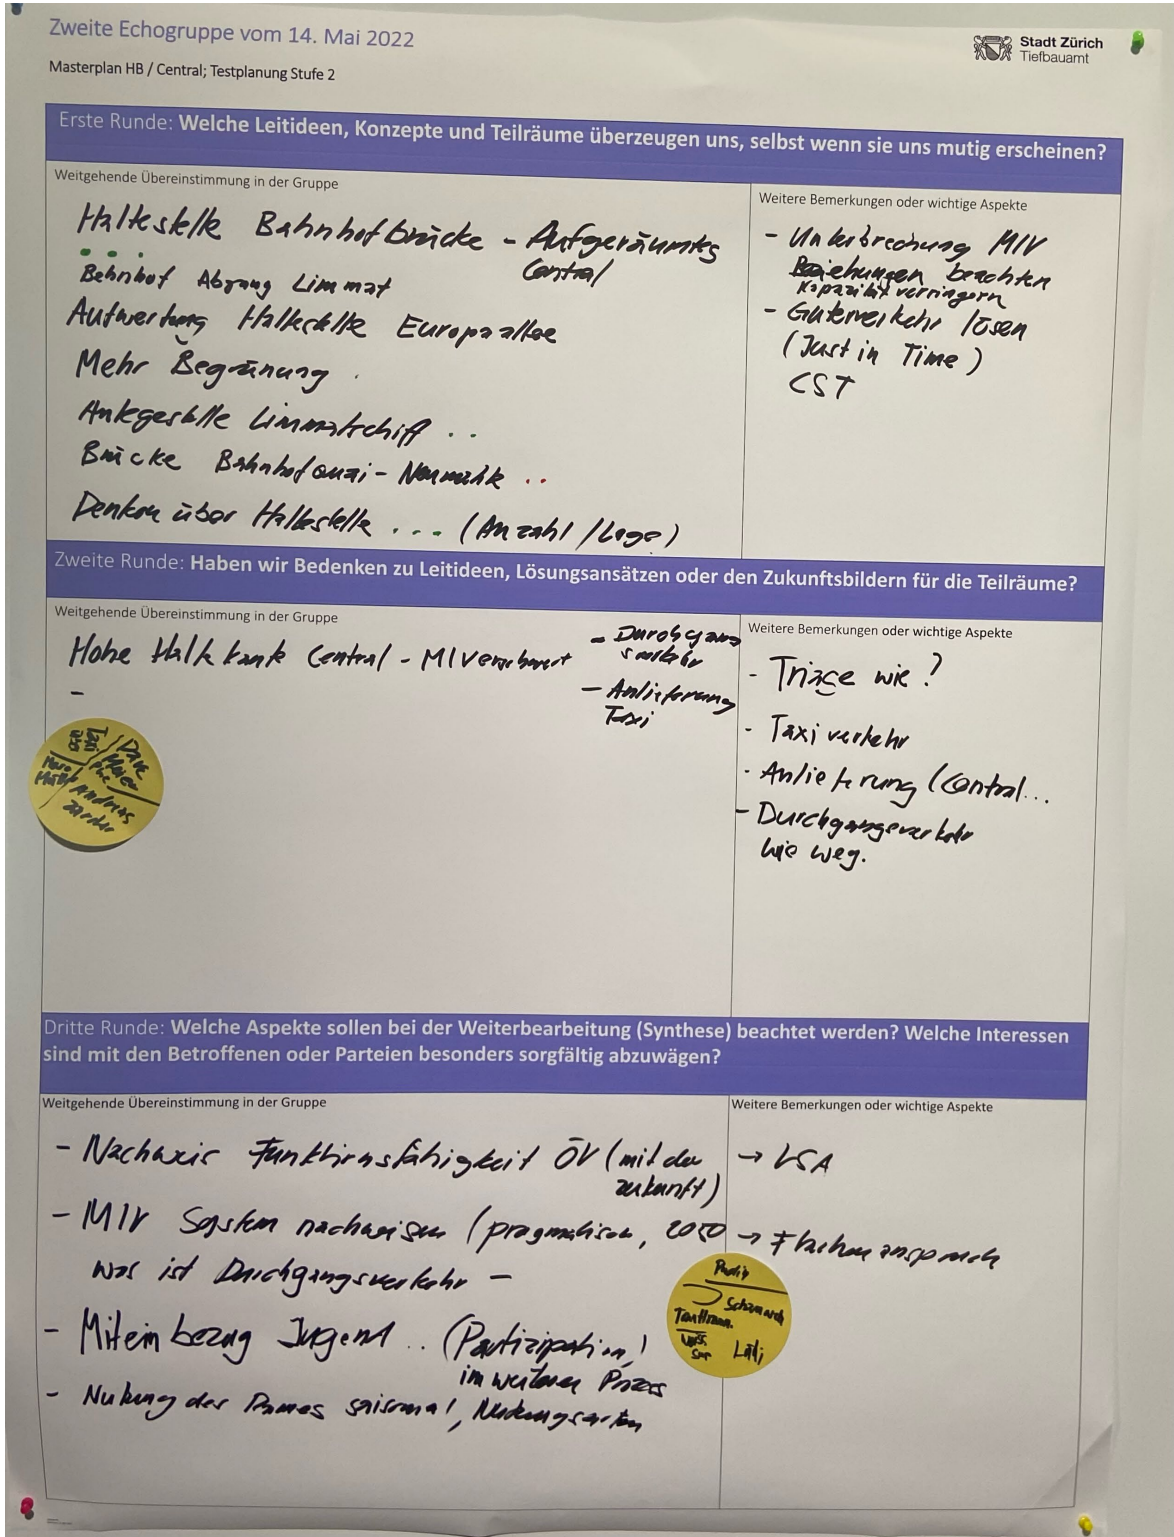 Zweite Echogruppe vom 14. Mai 2022
Masterplan HB / Central; Testplanung Stufe 2
Stadt Zürich
Tiefbauamt
Erste Runde: Welche Leitideen, Konzepte und Teilräume überzeugen uns, selbst wenn sie uns mutig erscheinen?
Weitgehende Übereinstimmung in der Gruppe
Haltestelle Bahnhofbrücke - Aufgeräumtes
Central
Bahnhof Abgang Limmat
Aufwertung Haltestelle Europaallee
Mehr Begrünung
Anlegestelle Limmatschiff
Brücke Bahnhofquai - Neumühle
Denken über Haltestelle ... (Anzahl / Lage)
Weitere Bemerkungen oder wichtige Aspekte
- Unterbrechung MIV
Beziehungen beachten
Kapazität verringern
- Güterverkehr lösen
(Just in Time)
CST
Zweite Runde: Haben wir Bedenken zu Leitideen, Lösungsansätzen oder den Zukunftsbildern für die Teilräume?
Weitgehende Übereinstimmung in der Gruppe
Hohe Haltekante Central - MIV erschwert
- Durchgangs
verkehr
- Anlieferung
Taxi
-
Andreas
Weitere Bemerkungen oder wichtige Aspekte
- Triage wie?
- Taxiverkehr
- Anlieferung (Central...
- Durchgangsverkehr
wie weg.
Dritte Runde: Welche Aspekte sollen bei der Weiterbearbeitung (Synthese) beachtet werden? Welche Interessen
sind mit den Betroffenen oder Parteien besonders sorgfältig abzuwägen?
Weitgehende Übereinstimmung in der Gruppe
- Nachweis Funktionsfähigkeit ÖV (mit der
zukunft)
- MIV System nachweisen (pragmatisch, 2050
was ist Durchgangsverkehr -
- Miteinbezug Jugend .. (Partizipation)
im weiteren Prozess
- Nutzung des Raumes saisonal, Nutzungsarten
Weitere Bemerkungen oder wichtige Aspekte
→ LSA
→ Flächenanspruch